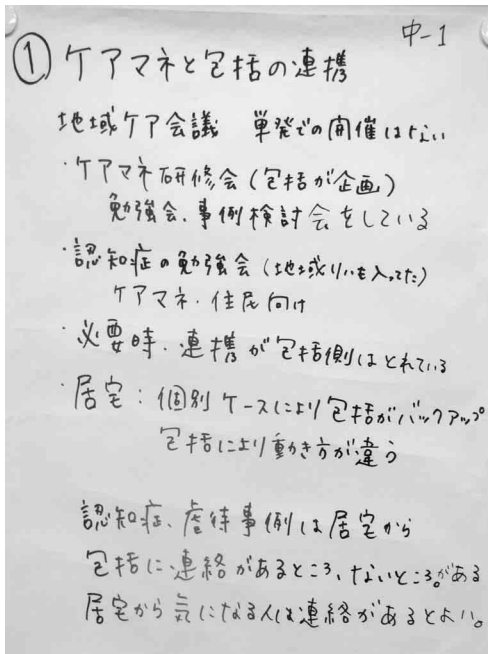 中-1
① ケアマネと包括の連携
地域ケア会議 単発での開催はない
・ケアマネ研修会(包括が企画)
勉強会、事例検討会をしている
・認知症の勉強会(地域リハも入ってた)
ケアマネ・住民向け
・必要時、連携が包括側はとれている
・居宅:個別ケースにより包括がバックアップ
包括により動き方が違う
認知症、虐待事例は居宅から
包括に連絡があるところ、ないところがある。
居宅から気になる人は連絡があるとよい。